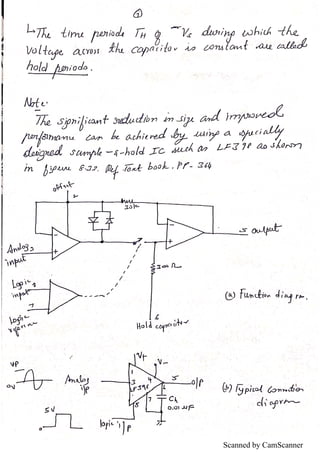 ↳ The time periods TH of Vs during which the
voltage across the capacitor is constant are called
hold periods.
Note:
The significant reduction in size and improved
performance can be achieved by using a specially
designed sample-&-hold IC such as LF398 as shown
in figure 8-32. Ref Text book. PP-
offset
2
30k
Analog 3
input
5 output
Logic 8
input
7
Logic
300Ω
6
Hold capacitor
(a) Function diagram.
VP
0V
Analog
i/p
V+
V-
1
4
3
5
O/P
LF398
8
7
6
Ch
0.01 µF
5V
logic i/p
(b) Typical connection
diagram.
Scanned by CamScanner